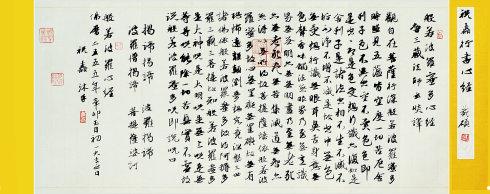 行書心經
般若波羅蜜多心經
唐三藏法師玄奘譯
觀自在菩薩行深般若波羅蜜多
時照見五蘊皆空度一切苦厄舍
利子色不異空空不異色色即
是空空即是色受想行識亦復如是
舍利子是諸法空相不生不滅
不垢不淨不增不減是故空中無色
無受想行識無眼耳鼻舌身意無
色聲香味觸法無眼界乃至無意識界
無無明亦無無明盡乃至無老死
亦無老死盡無苦集滅道無智亦
無得以無所得故菩提薩埵依般若
波羅蜜多故心無罣礙無罣礙故無有恐怖
遠離顛倒夢想究竟涅槃三世
諸佛依般若波羅蜜多故得阿耨多
羅三藐三菩提故知般若波羅蜜多
是大神咒是大明咒是無上咒是無等
等咒能除一切苦真實不虛故
說般若波羅蜜多咒即說咒曰
揭諦揭諦 波羅揭諦
波羅僧揭諦 菩提薩婆訶
般若波羅心經
佛曆二五五五年辛卯五月初
沐手